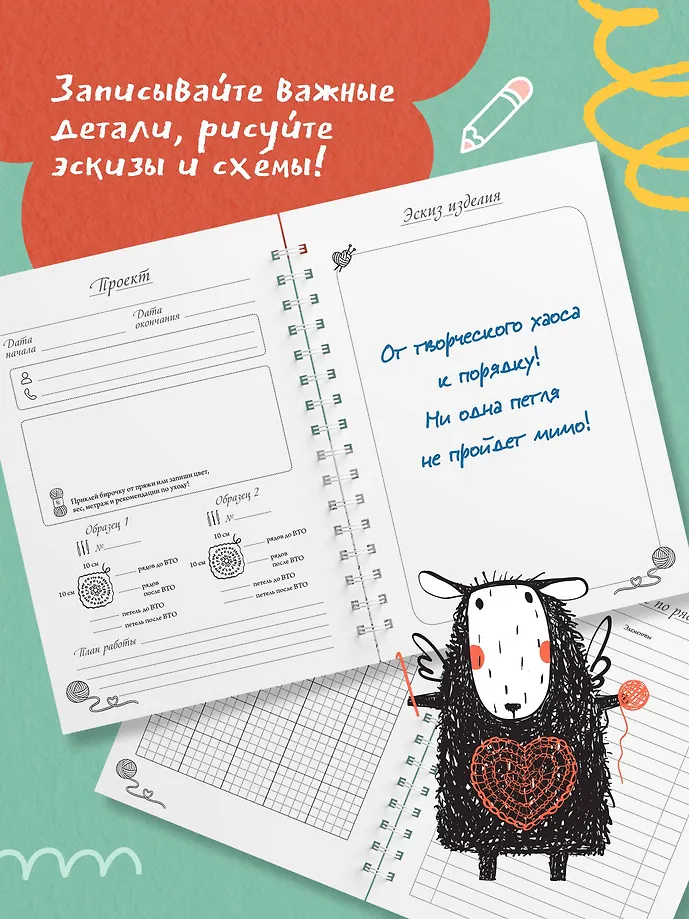 Записывайте важные
детали, рисуйте
эскизы и схемы!
Проект
Дата
начала
Дата
окончания
Приклей бирочку от пряжи или запиши цвет,
вес, метраж и рекомендации по уходу!
Образец 1
№
10 см
10 см
рядов до ВТО
рядов
после ВТО
петель до ВТО
петель после ВТО
Образец 2
№
10 см
10 см
рядов до ВТО
рядов
после ВТО
петель до ВТО
петель после ВТО
План работы
Эскиз изделия
От творческого хаоса
к порядку!
Ни одна петля
не пройдет мимо!
по